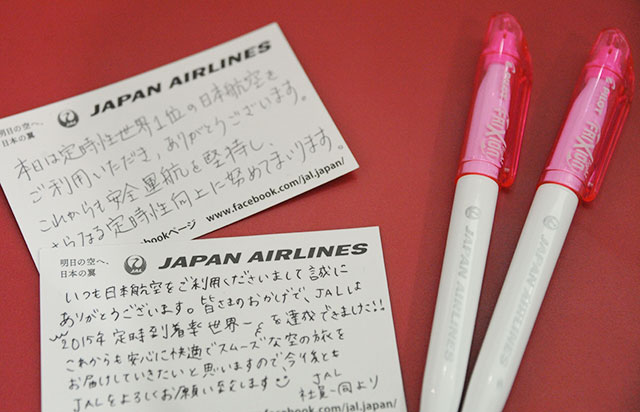 明日の空へ、
日本の翼
JAPAN AIRLINES
本日は定時性世界1位の日本航空を
ご利用いただき、ありがとうございます。
これからも安全運航を堅持し、
さらなる定時性向上に努めてまいります。
bookページ www.facebook.com/jal.japan/
明日の空へ、
日本の翼
JAPAN AIRLINES
いつも日本航空をご利用くださいまして誠に
ありがとうございます。皆さまのおかげで、JALは
2015年定時到着率世界一を達成できました!!
これからも安心に快適でスムーズな空の旅を
お届けしていきたいと思いますので、今後とも
JALをよろしくお願いいたします
JAL
社員一同より
.com/jal.japan/
PILOT FriXion
JAPAN AIRLINES
PILOT FriXion
JAPAN AIRLINES